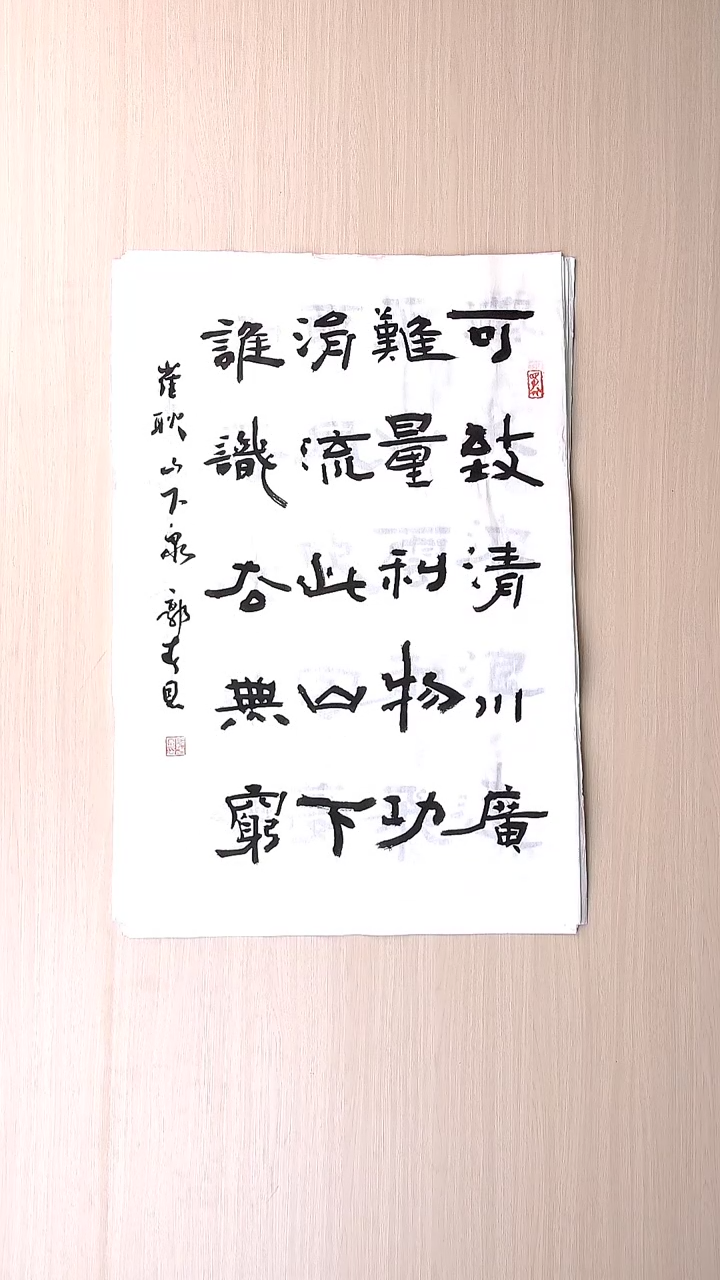 可致清川廣
難量利物功
涓流此山下
誰識台無窮
崔耿山下泉 郭